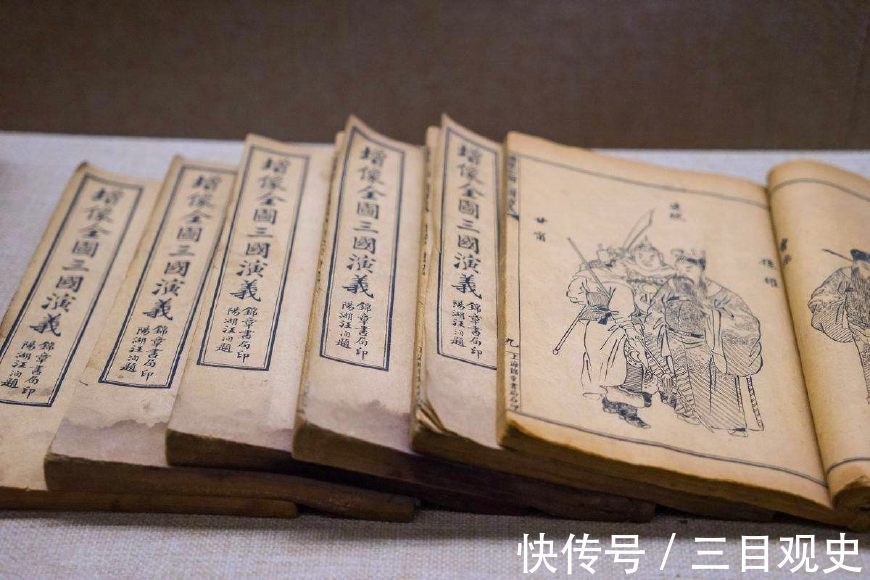 增像全圖三國演義
錦章書局印
陽湖汪洵題
增像全圖三國演義
錦章書局印
陽湖汪洵題
增像全圖三國演義
錦章書局印
陽湖汪洵題
增像全圖三國演義
錦章書局印
陽湖汪洵題
增像全圖三國演義
錦章書局印
陽湖汪洵題
甘甯
九
上海錦章書局
快传号 / 三目观史